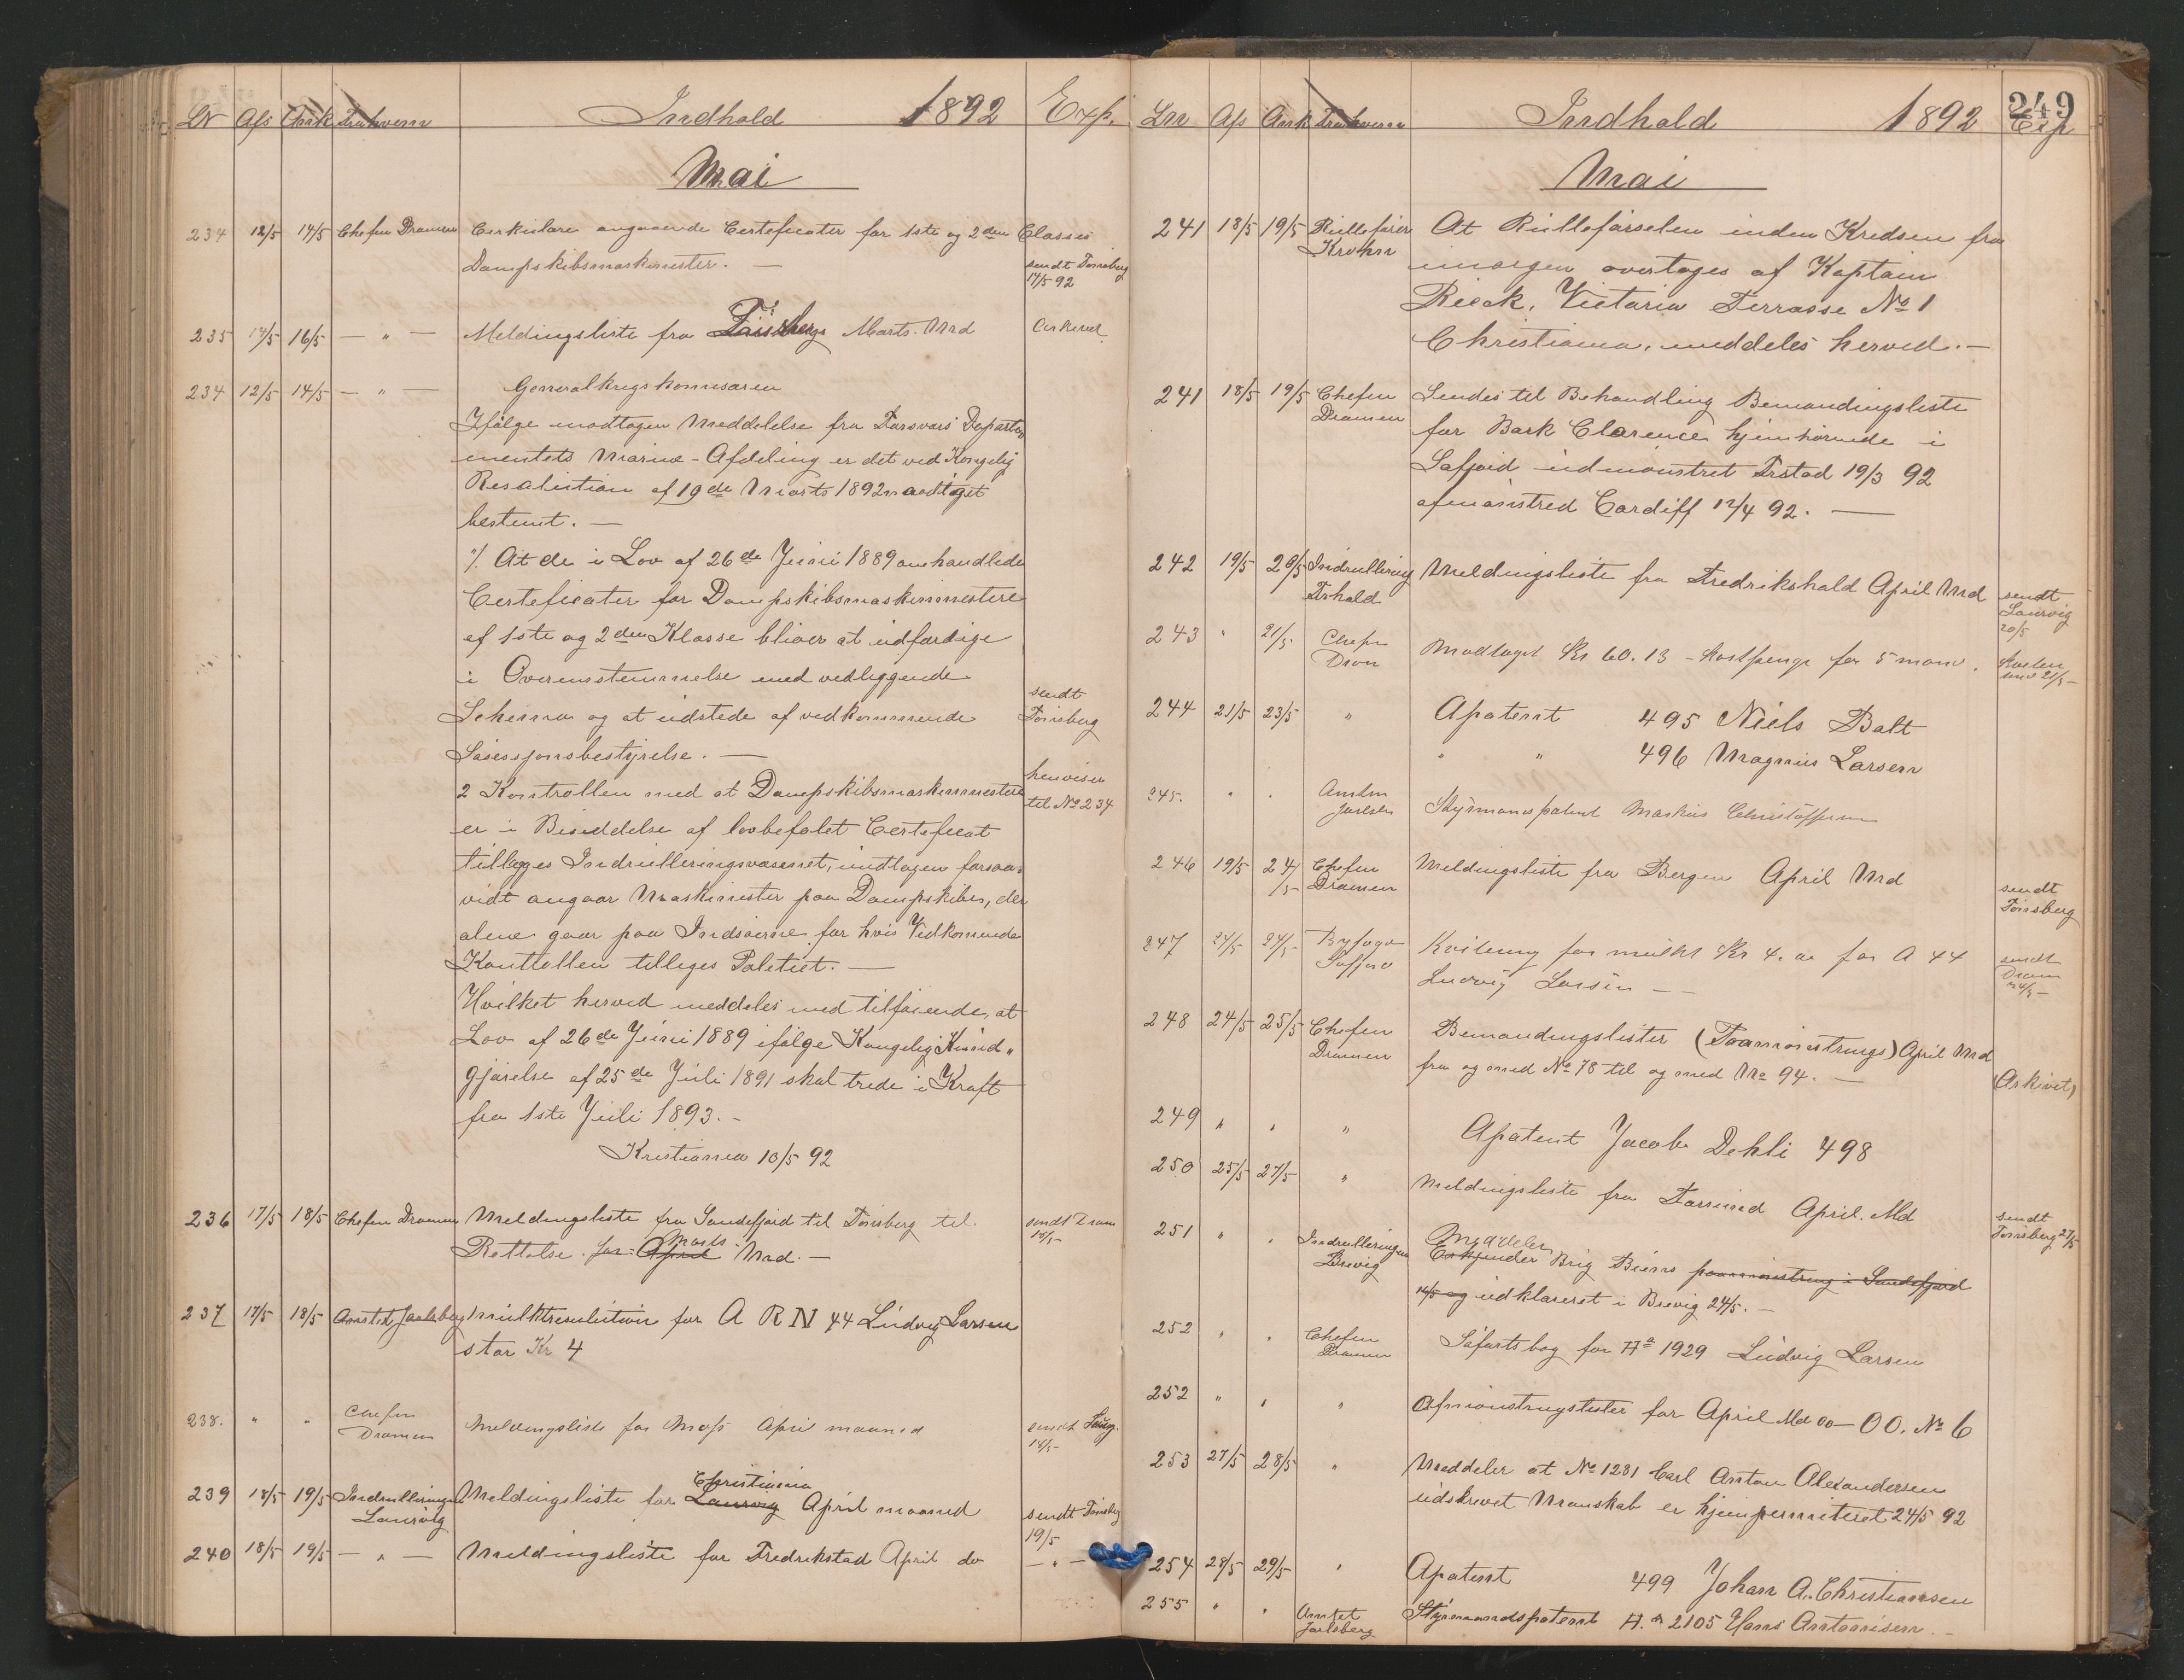 LN Afs Ank Indhold 1892 Exp.
Mai
234 12/5 14/5 Chefen Dramen Cirkulære angaaende Certeficater for 1ste og 2den Classes
Dampskibsmaskinister. — sendt Tønsberg
14/5 92
235 14/5 16/5 — " — Meldingsliste fra Marts Md Arkivet
234 12/5 14/5 — " — Generalkrigskommisæren
Ifølge modtagen Meddelelse fra Forsvars Departe
mentets Marine-Afdeling er det ved Kongelig
Resolution af 19de Marts 1892
bestemt. —
1/ At de i Lov af 26de Juni 1889 omhandlede
Certeficater for Dampskibsmaskinmestere
af 1ste og 2den Klasse bliver at udfærdige
i Overensstemmelse med vedliggende
Schema og at udstede af vedkommende
Sósessjonsbestyrelse. —
sendt
Tønsberg
2 Kontrollen med at Dampskibsmaskinmestere
er i Besiddelse af lovbefalet Certeficat
henvises
til No 234
tillægges Indrulleringsvæsenet, undtagen forsaa-
vidt angaar Maskinister paa Dampskibe, der
alene gaar paa Indsøerne for hvis Vedkomende
Kontrollen tilleges Politiet. —
Hvilket herved meddeles med tilføiende, at
Lov af 26de Juni 1889 ifølge Kongelig Kund-
gjørelse af 25de Juli 1891 skal træde i Kraft
fra 1ste Juli 1893. -
Kristiania 10/5 92
236 17/5 18/5 Chefen Dramen Meldingsliste fra Sandefjord til Tønsberg til
Rettelse. for April Marts Md. — sendt Dram
18/5
237 17/5 18/5 Amtet Jarlsberg Mulktresulution for A R N 44 Ludvig Larsen
stor Kr 4
238. " " Chefen
Dramen Meldingsliste for Moss April maaned sendt
18/5
239 18/5 19/5 Indrulleringen
Laurvig Meldingsliste for Laurvig Christiania April maaned sendt Tønsberg
19/5
240 18/5 19/5 — " — Meldingsliste for Fredrikstad April do — " —
249
Lnr Afs Ank Indhold 1892 Exp
Mai
241 18/5 19/5 Rullefører
Krohn At Rulleførselen inden Kredsen fra
imorgen overtages af Kaptain
Rieck, Victoria Terrasse No 1
Christiania, meddeles herved. —
241 18/5 19/5 Chefen
Dramen Sendes til Behandling Bemandingsliste
for Bark Clarence hjemhørende i
Safjord udmønstret Frstad 19/3 92
afmønstred Cardiff 12/4 92. —
242 19/5 20/5 Indrullering
Frhald Meldingsliste fra Fredrikshald April Md sendt
Laurvig
20/5
243 " 21/5 Chefen
Dram Modtaget Kr 60.13 - Kostpenge for 5 mand.
244 21/5 23/5 " Apatent 495 Niels Bolt
" " 496 Magnus Larsen
245. " " Amtm
Jarlsb Styrmandspatent Markus Christoffersen
246 19/5 24/5 Chefen
Dramen Meldingsliste fra Bergen April Md sendt
Tønsberg
247 24/5 24/5 Byfoged
Safjord Kvitering for mulkt Kr 4. for A 44
Ludvig Larsen — sendt
Dram
24/5 —
248 24/5 25/5 Chefen
Dramen Bemandingslister (Paamønstrings) April Md
fra og med No 78 til og med No 94. — (Arkivet)
249 " " " Apatent Jacob Dehli 498
250 25/5 27/5 " Meldingsliste fra Farsund April. Md sendt
Tønsberg 27/5
251 " " Indrulleringen
Brevig Meddeler
Brig paamønstring i Sandefjord
16/5 og udklareret i Brevig 24/5. —
252 " " Chefen
Dramen Søfartsbog for Aa 1929 Ludvig Larsen
252 " " " Afmønstringslister for April Md 00 — 00. No 6
253 27/5 28/5 " Meddeler at No 1281 Carl Anton Alexandersen
udskrevet Manskab er hjempermiteret 24/5 92
254 28/5 29/5 " Apatent 499 Johan A. Christiansen
255 " " Amtet
Jarlsberg Styrmandspatent A.a 2105 Hans Antonisen. -